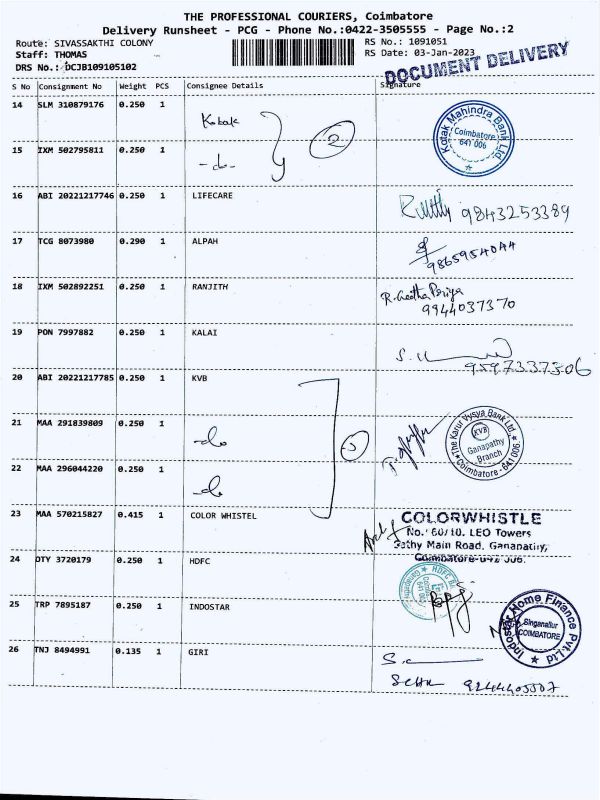 THE PROFESSIONAL COURIERS, Coimbatore
Delivery Runsheet - PCG - Phone No.:0422-3505555 - Page No.:2
Route: SIVASSAKTHI COLONY
Staff: THOMAS
DRS No.: DCJB109105102
RS No.: 1091051
RS Date: 03-Jan-2023
DOCUMENT DELIVERY
S No Consignment No Weight PCS Consignee Details Signature
14 SLM 310879176 0.250 1 Kotak
2
Kotak Mahindra Bank Ltd
Coimbatore
641 006
15 IXM 502795811 0.250 1 -do-
16 ABI 20221217746 0.250 1 LIFECARE
9843253389
17 TCG 8073980 0.290 1 ALPAH
9865954044
18 IXM 502892251 0.250 1 RANJITH
R. Geetha Priya
9944037370
19 PON 7997882 0.250 1 KALAI
9597337306
20 ABI 20221217785 0.250 1 KVB
21 MAA 291839809 0.250 1 -do-
The Karur Vysya Bank Ltd.
KVB
Ganapathy
Branch
Coimbatore - 641 006.
22 MAA 296044220 0.250 1 -do-
23 MAA 570215827 0.415 1 COLOR WHISTEL
COLORWHISTLE
No. 60/10, LEO Towers
Sathy Main Road, Ganapathy,
Coimbatore-641 006.
24 DTY 3720179 0.250 1 HDFC
25 TRP 7895187 0.250 1 INDOSTAR
Indostar Home Finance Pvt. Ltd
Singanallur
COIMBATORE
26 TNJ 8494991 0.135 1 GIRI